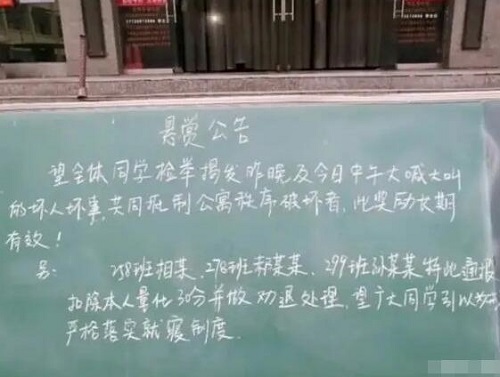 悬赏公告
望全体同学检举揭发昨晚及今日中午大喊大叫
的坏人坏事,共同抵制公寓秩序破坏者,此奖励长期
有效!
另: 258班相某、278班郝某某、299班孙某某特此通报
扣除本人量化30分并做劝退处理,望广大同学引以为
严格落实就寝制度.